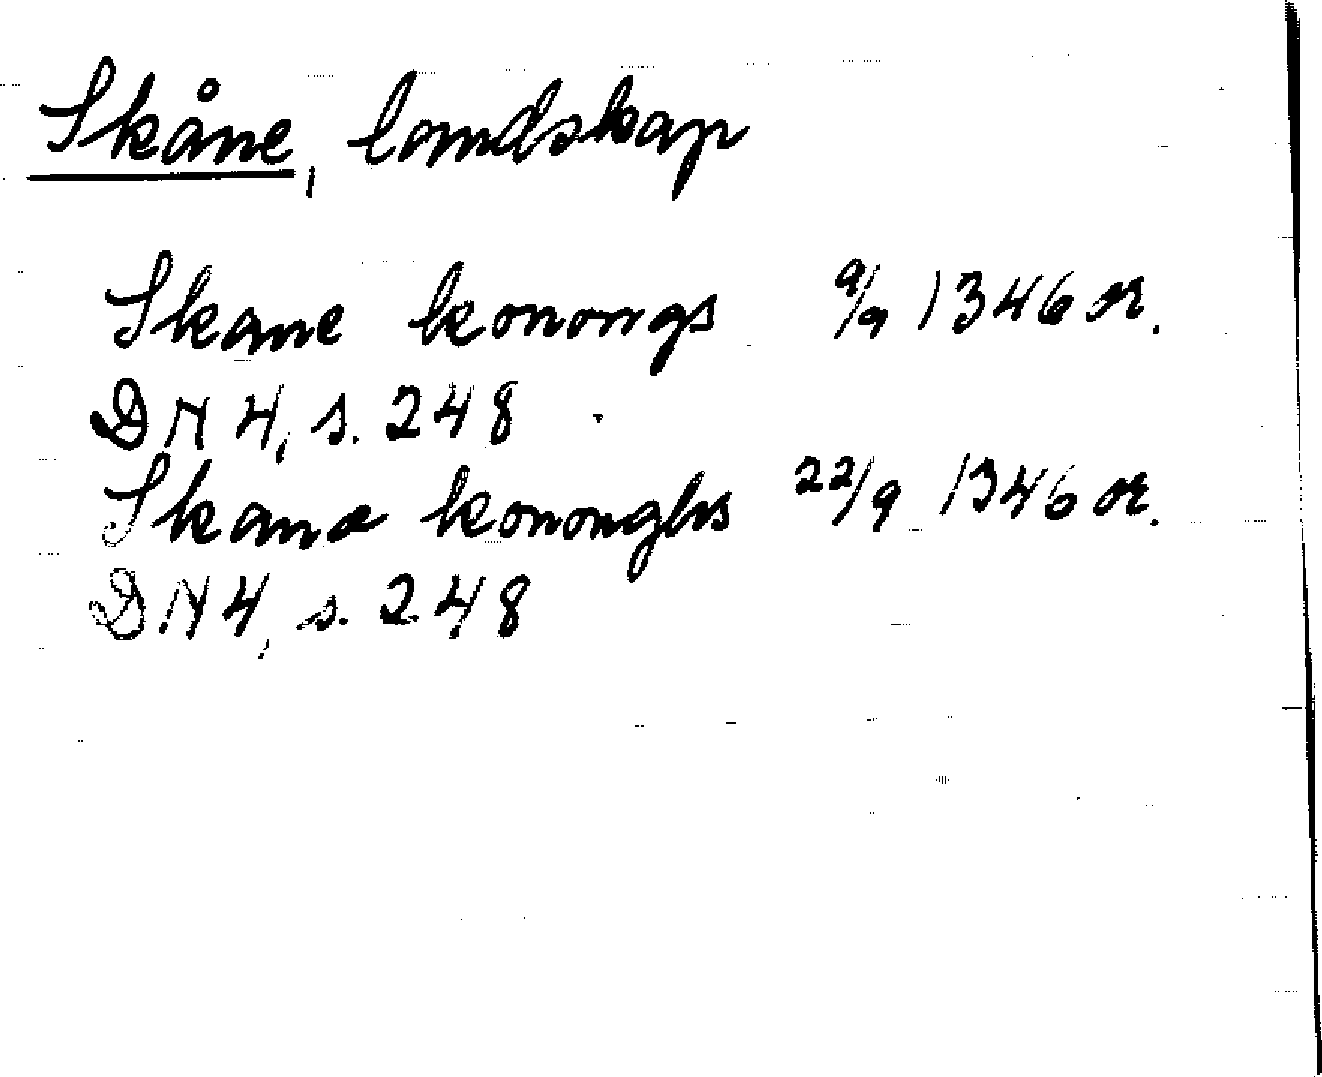 Skåne, landskap
Skane konongs 9/9 1346 or.
DN 4, s. 248
Skanæ kononghs 22/9 1346 or.
DN 4, s. 248